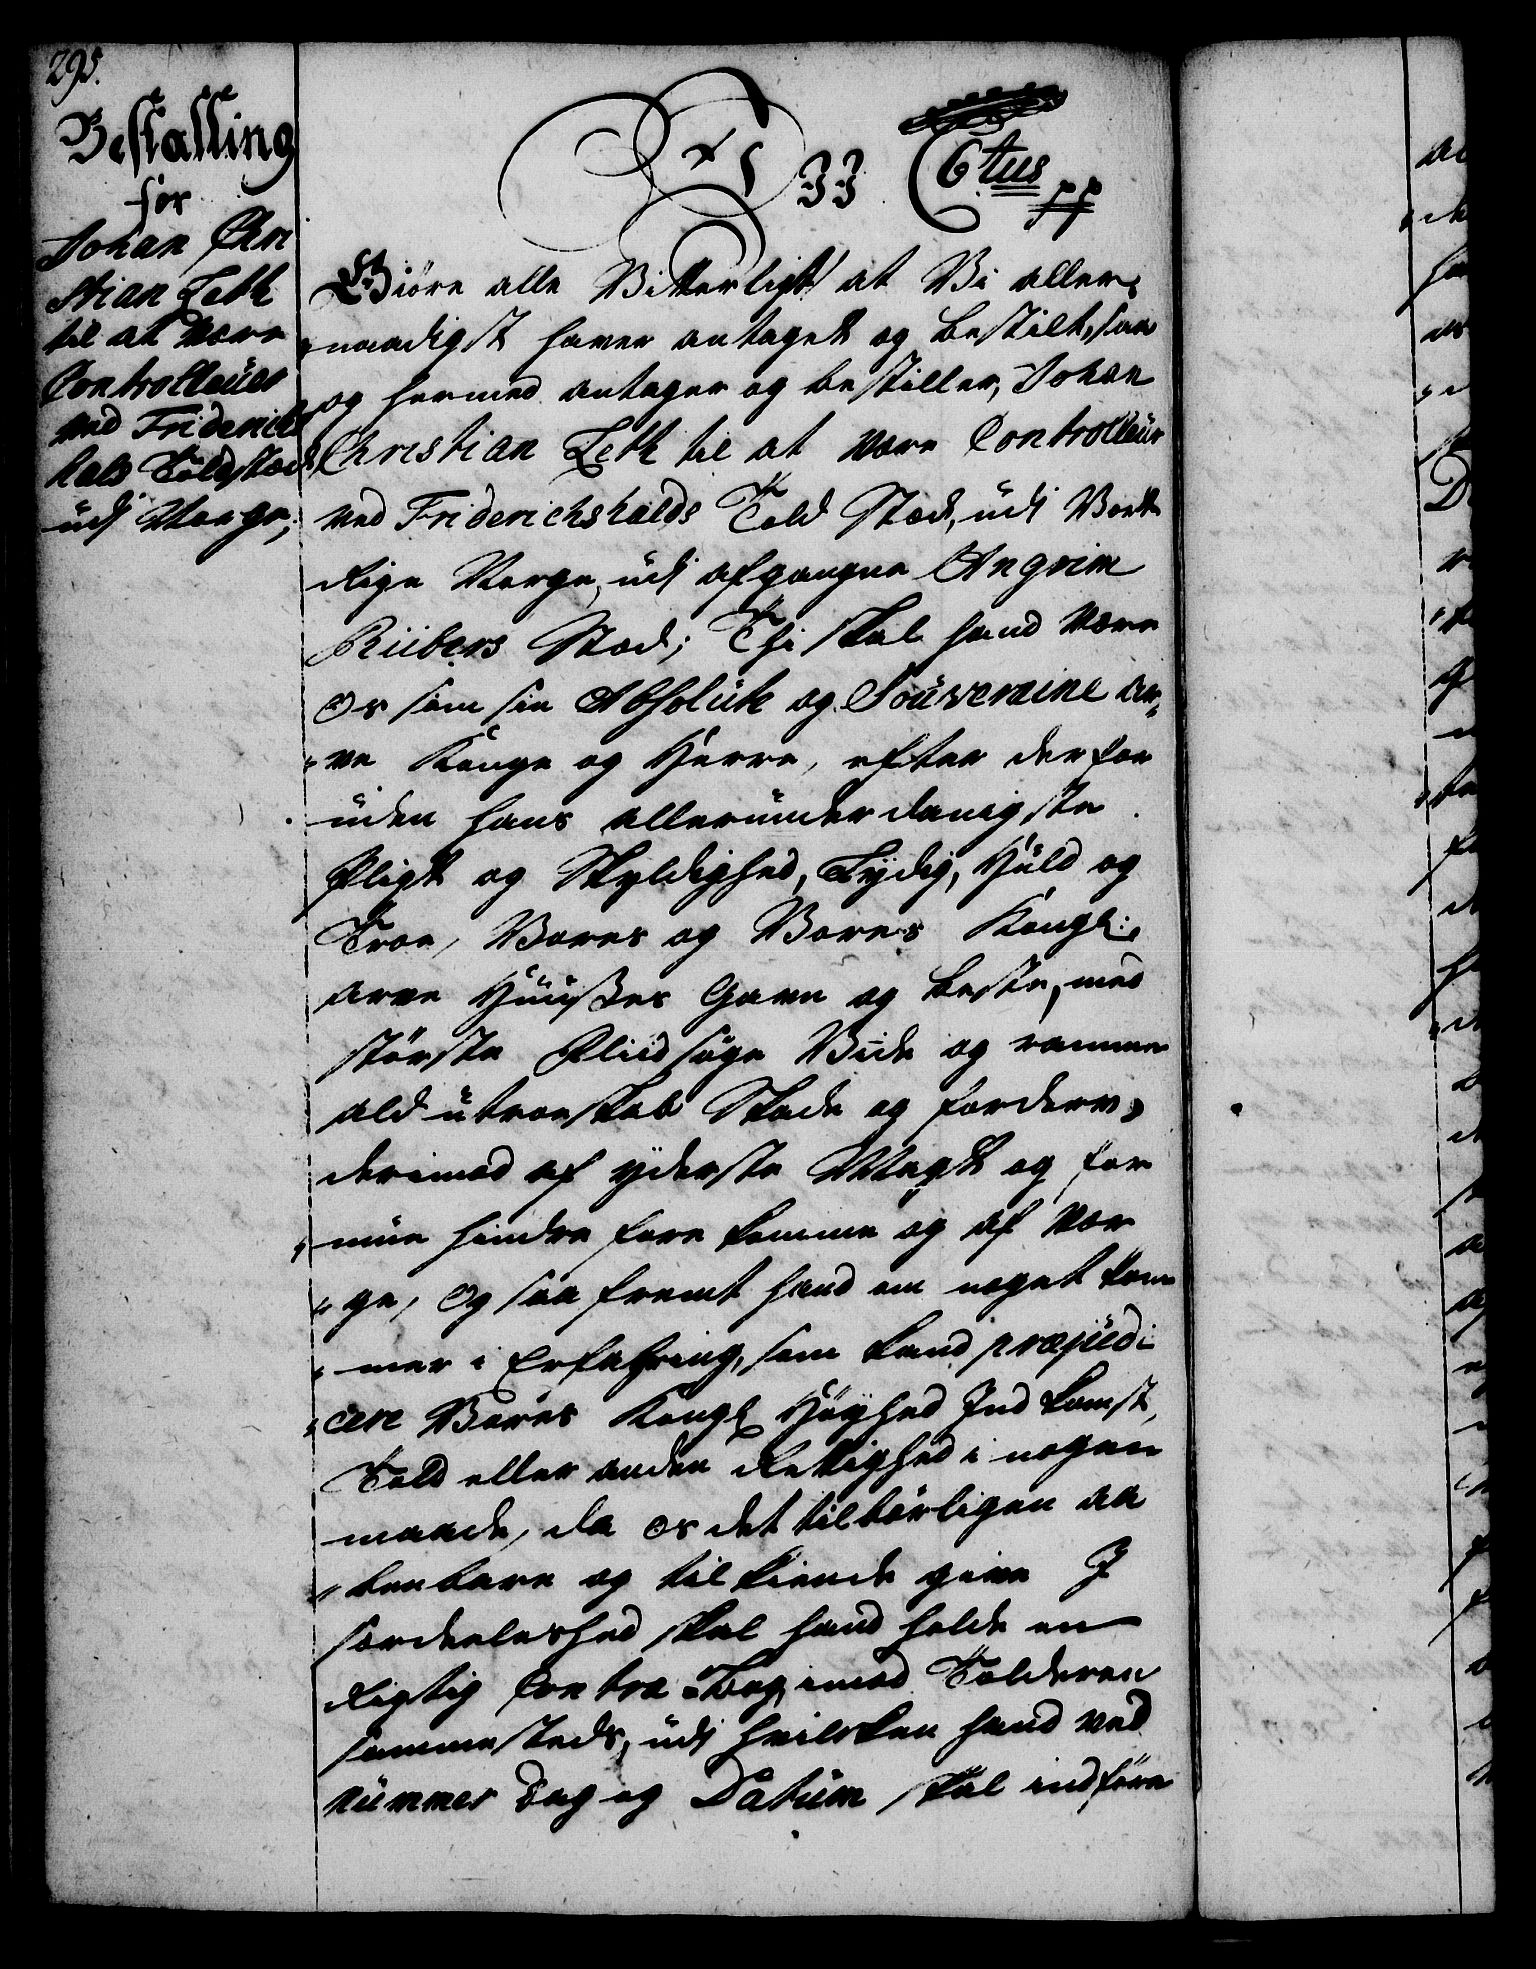 295.
Bestalling
for
Johan Chri
stian Leth
til at være
Controlleur
ved Friderichs
halds Toldsted
udj Norge;
C 6tus pp
Giöre alle Vitterligt at Vi aller„
„naadigst haver antaget og bestilt, saa
og hermed antager og bestiller, Johan
Christian Leth til at være Controlleur
ved Friderichshalds Told Sted, udj Vort
Rige Norge, udj afgangne Angrim
Riibers Sted; Thi skal hand være
os som sin Absolute og Souveraine ar„
„ve Konge og Herre, efter derfor
uden hans allerunderdanigste
Pligt og Skyldighed, Lydig, Huld og
Troe, Vores og Vores Kongl:
arve Huuses Gavn og beste, med
störste Fliid söge Viide og ramme
ald utroeskab Skade og forderv,
derimod af yderste Magt og for
„mue hindre forekomme og af Vær
„ge, Og saa fremt hand om noget kom
„mer i Erfahring, som kand præjudi
„cere Vores Kongl Höyhed Indkomst,
Told eller anden Rettighed i nogen
maade, da os det tilbörligen aa
„benbare og tilkiende give I
særdeeleshed skal hand holde en
Rigtig Contra Bog, imod Tolderen
sammesteds, udj hvilken hand ved
Nummer Dag og Datum skal indföre